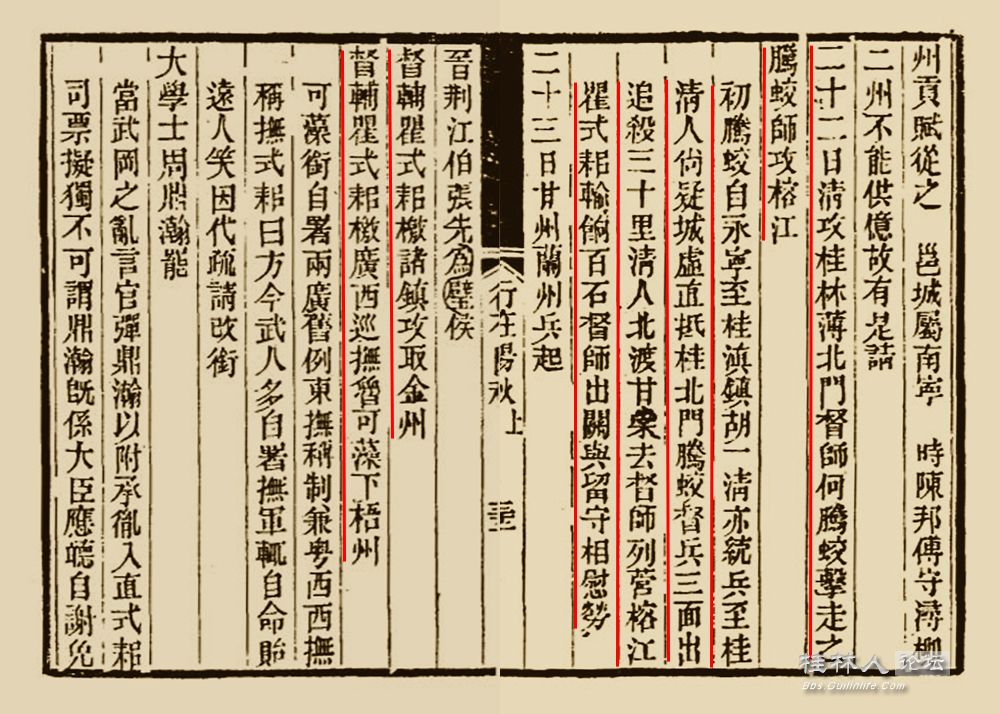 州貢賦從之　邕城屬南寧　時陳邦傅守潯柳
二州不能供億故有是請
二十二日清攻桂林薄北門督師何騰蛟擊走之
騰蛟師攻榕江
初騰蛟自永寧至桂滇鎮胡一清亦統兵至桂
清人尙疑城虛直抵桂北門騰蛟督兵三面出
追殺三十里清人北渡甘棠去督師列營榕江
瞿式耜輸餉百石督師出關與留守相慰勞
二十三日甘州蘭州兵起
行在陽秋　上
晉荆江伯張先璧爲侯
督輔瞿式耜檄諸鎮攻取金州
督輔瞿式耜檄廣西巡撫魯可藻下梧州
可藻銜自署兩廣舊例東撫稱制兼粤西西撫
稱撫式耜曰方今武人多自署撫軍輒自命貽
遠人笑因代疏請改銜
大學士周鼎瀚能
當武岡之亂言官彈鼎瀚以附承胤入直式耜
司票擬獨不可謂鼎瀚旣係大臣應聽自謝免
桂林人论坛
Bbs.Guilinlife.Com